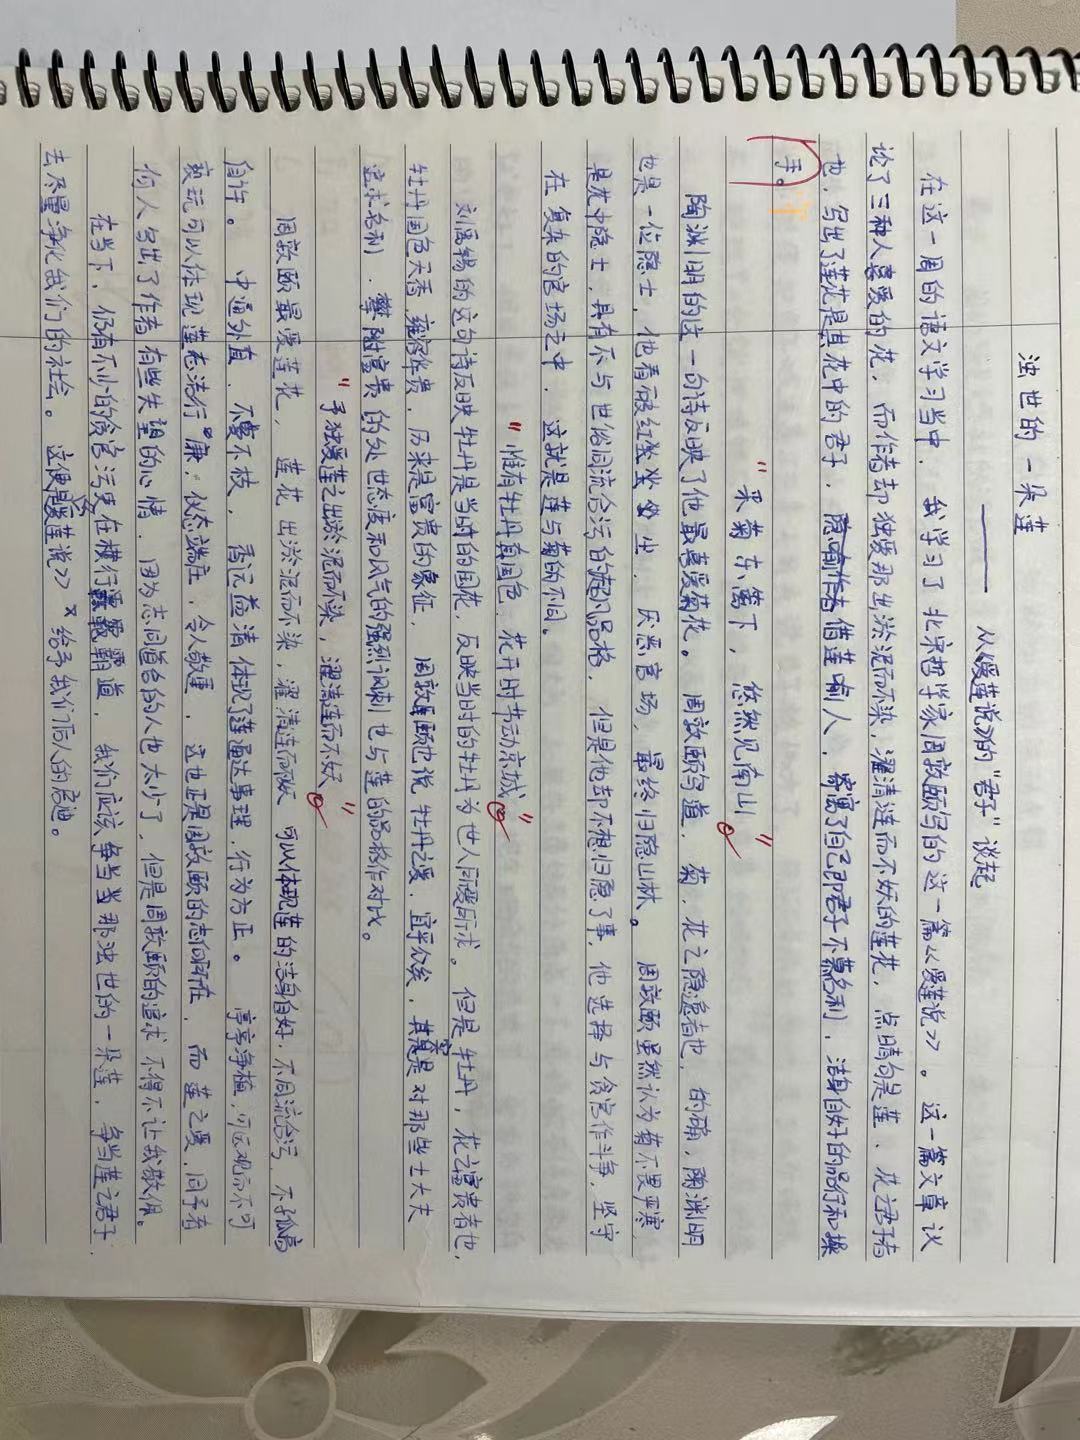 浊世的一朵莲
——从《爱莲说》的“君子”谈起
在这一周的语文学习当中，我学习了北宋哲学家周敦颐写的这一篇《爱莲说》。这一篇文章议
论了三种人喜爱的花，而作者却独爱那出淤泥而不染，濯清涟而不妖的莲花，点睛句是莲、花之君子者
也，写出了莲花是其花中的君子，借莲喻人，寄寓了自己即君子不慕名利，洁身自好的品行和操
手。
“采菊东篱下，悠然见南山”
陶渊明的这一句诗反映了他最喜爱菊花。周敦颐写道，菊，花之隐逸者也，的确，陶渊明
也是一位隐士，他看破红尘，厌恶官场，最终归隐山林。周敦颐虽然认为菊不畏严寒，
是花中隐士，具有不与世俗同流合污的超凡品格，但是他却不想归隐了事，他选择与贪官作斗争，坚守
在复杂的官场之中，这就是莲与菊的不同。
“惟有牡丹真国色，花开时节动京城”
刘禹锡的这句诗反映牡丹是当时的国花，反映当时的牡丹为世人同爱所求。但是牡丹，花之富贵者也，
牡丹国色天香，雍容华贵，历来是富贵的象征，周敦颐也说牡丹之爱，宜乎众矣，其实是对那些士大夫
追求名利，攀附富贵的处世态度和风气的强烈讽刺也与莲的品格作对比。
“予独爱莲之出淤泥而不染，濯清涟而不妖”
周敦颐最爱莲花，莲花出淤泥而不染，濯清涟而不妖可以体现莲的洁身自好，不同流合污，不孤高
自许。中通外直，不蔓不枝，香远益清体现了莲通达事理，行为方正。亭亭净植，可远观而不可
亵玩可以体现莲志洁行廉，仪态端庄，令人敬重，这也正是周敦颐的志向所在，而莲之爱，同予者
何人写出了作者有些失望的心情，因为志同道合的人也太少了，但是周敦颐的追求不得不让我敬佩。
在当下，仍有不少的贪官污吏在横行霸道，我们应该争当那浊世的一朵莲，争当莲之君子，
去尽量净化我们的社会。这便是《爱莲说》给予我们后人的启迪。